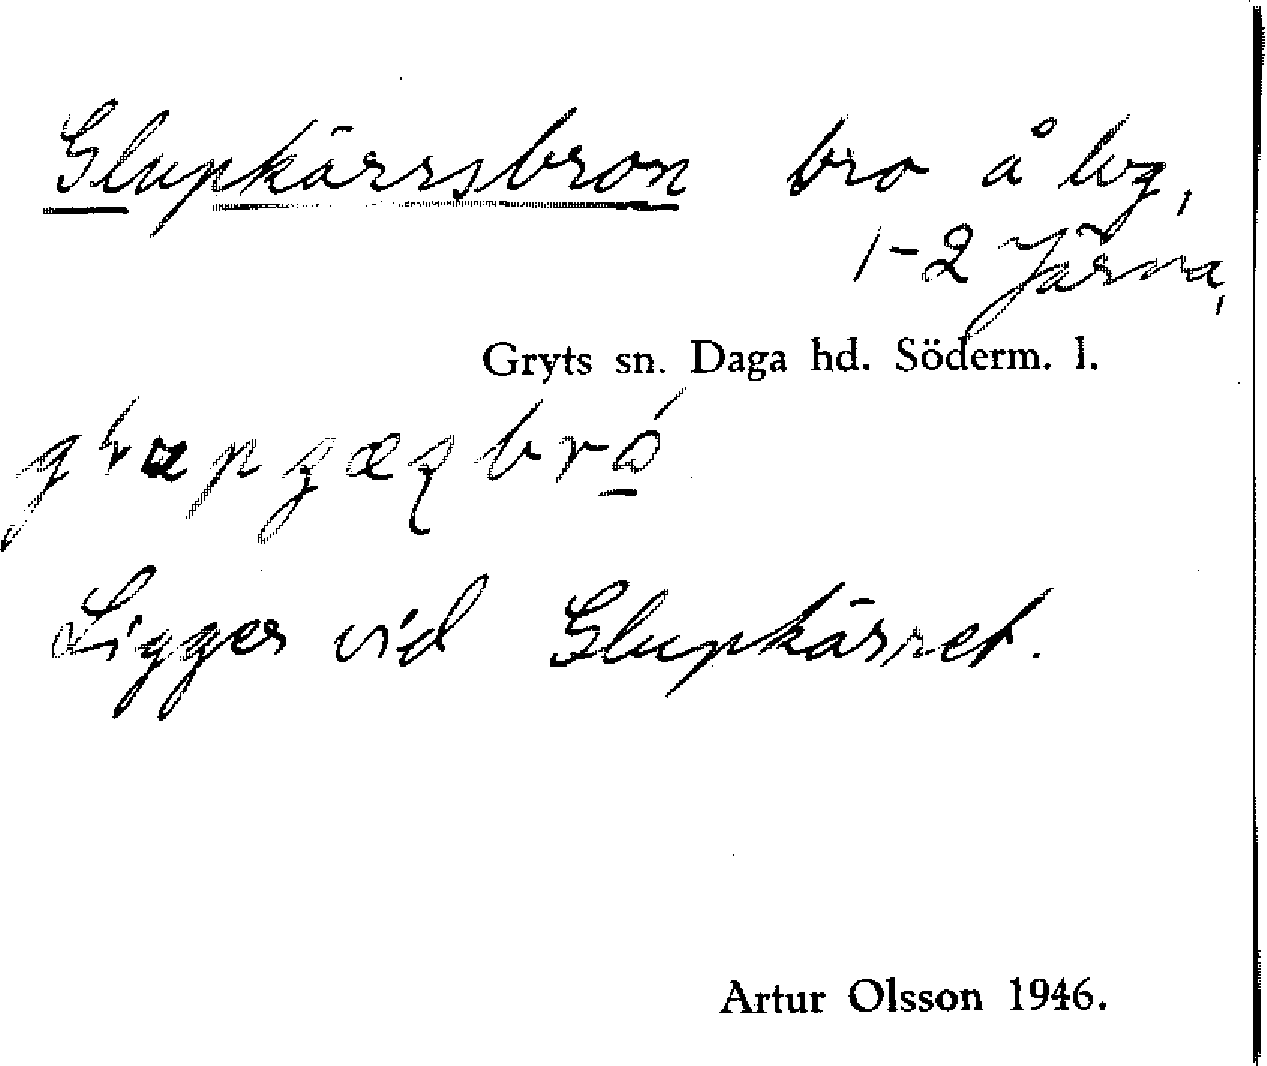 Glupkärrsbron bro å lvg,
1-2 Järna,
Gryts sn. Daga hd. Söderm. l.
Ligger vid Glupkärret.
Artur Olsson 1946.